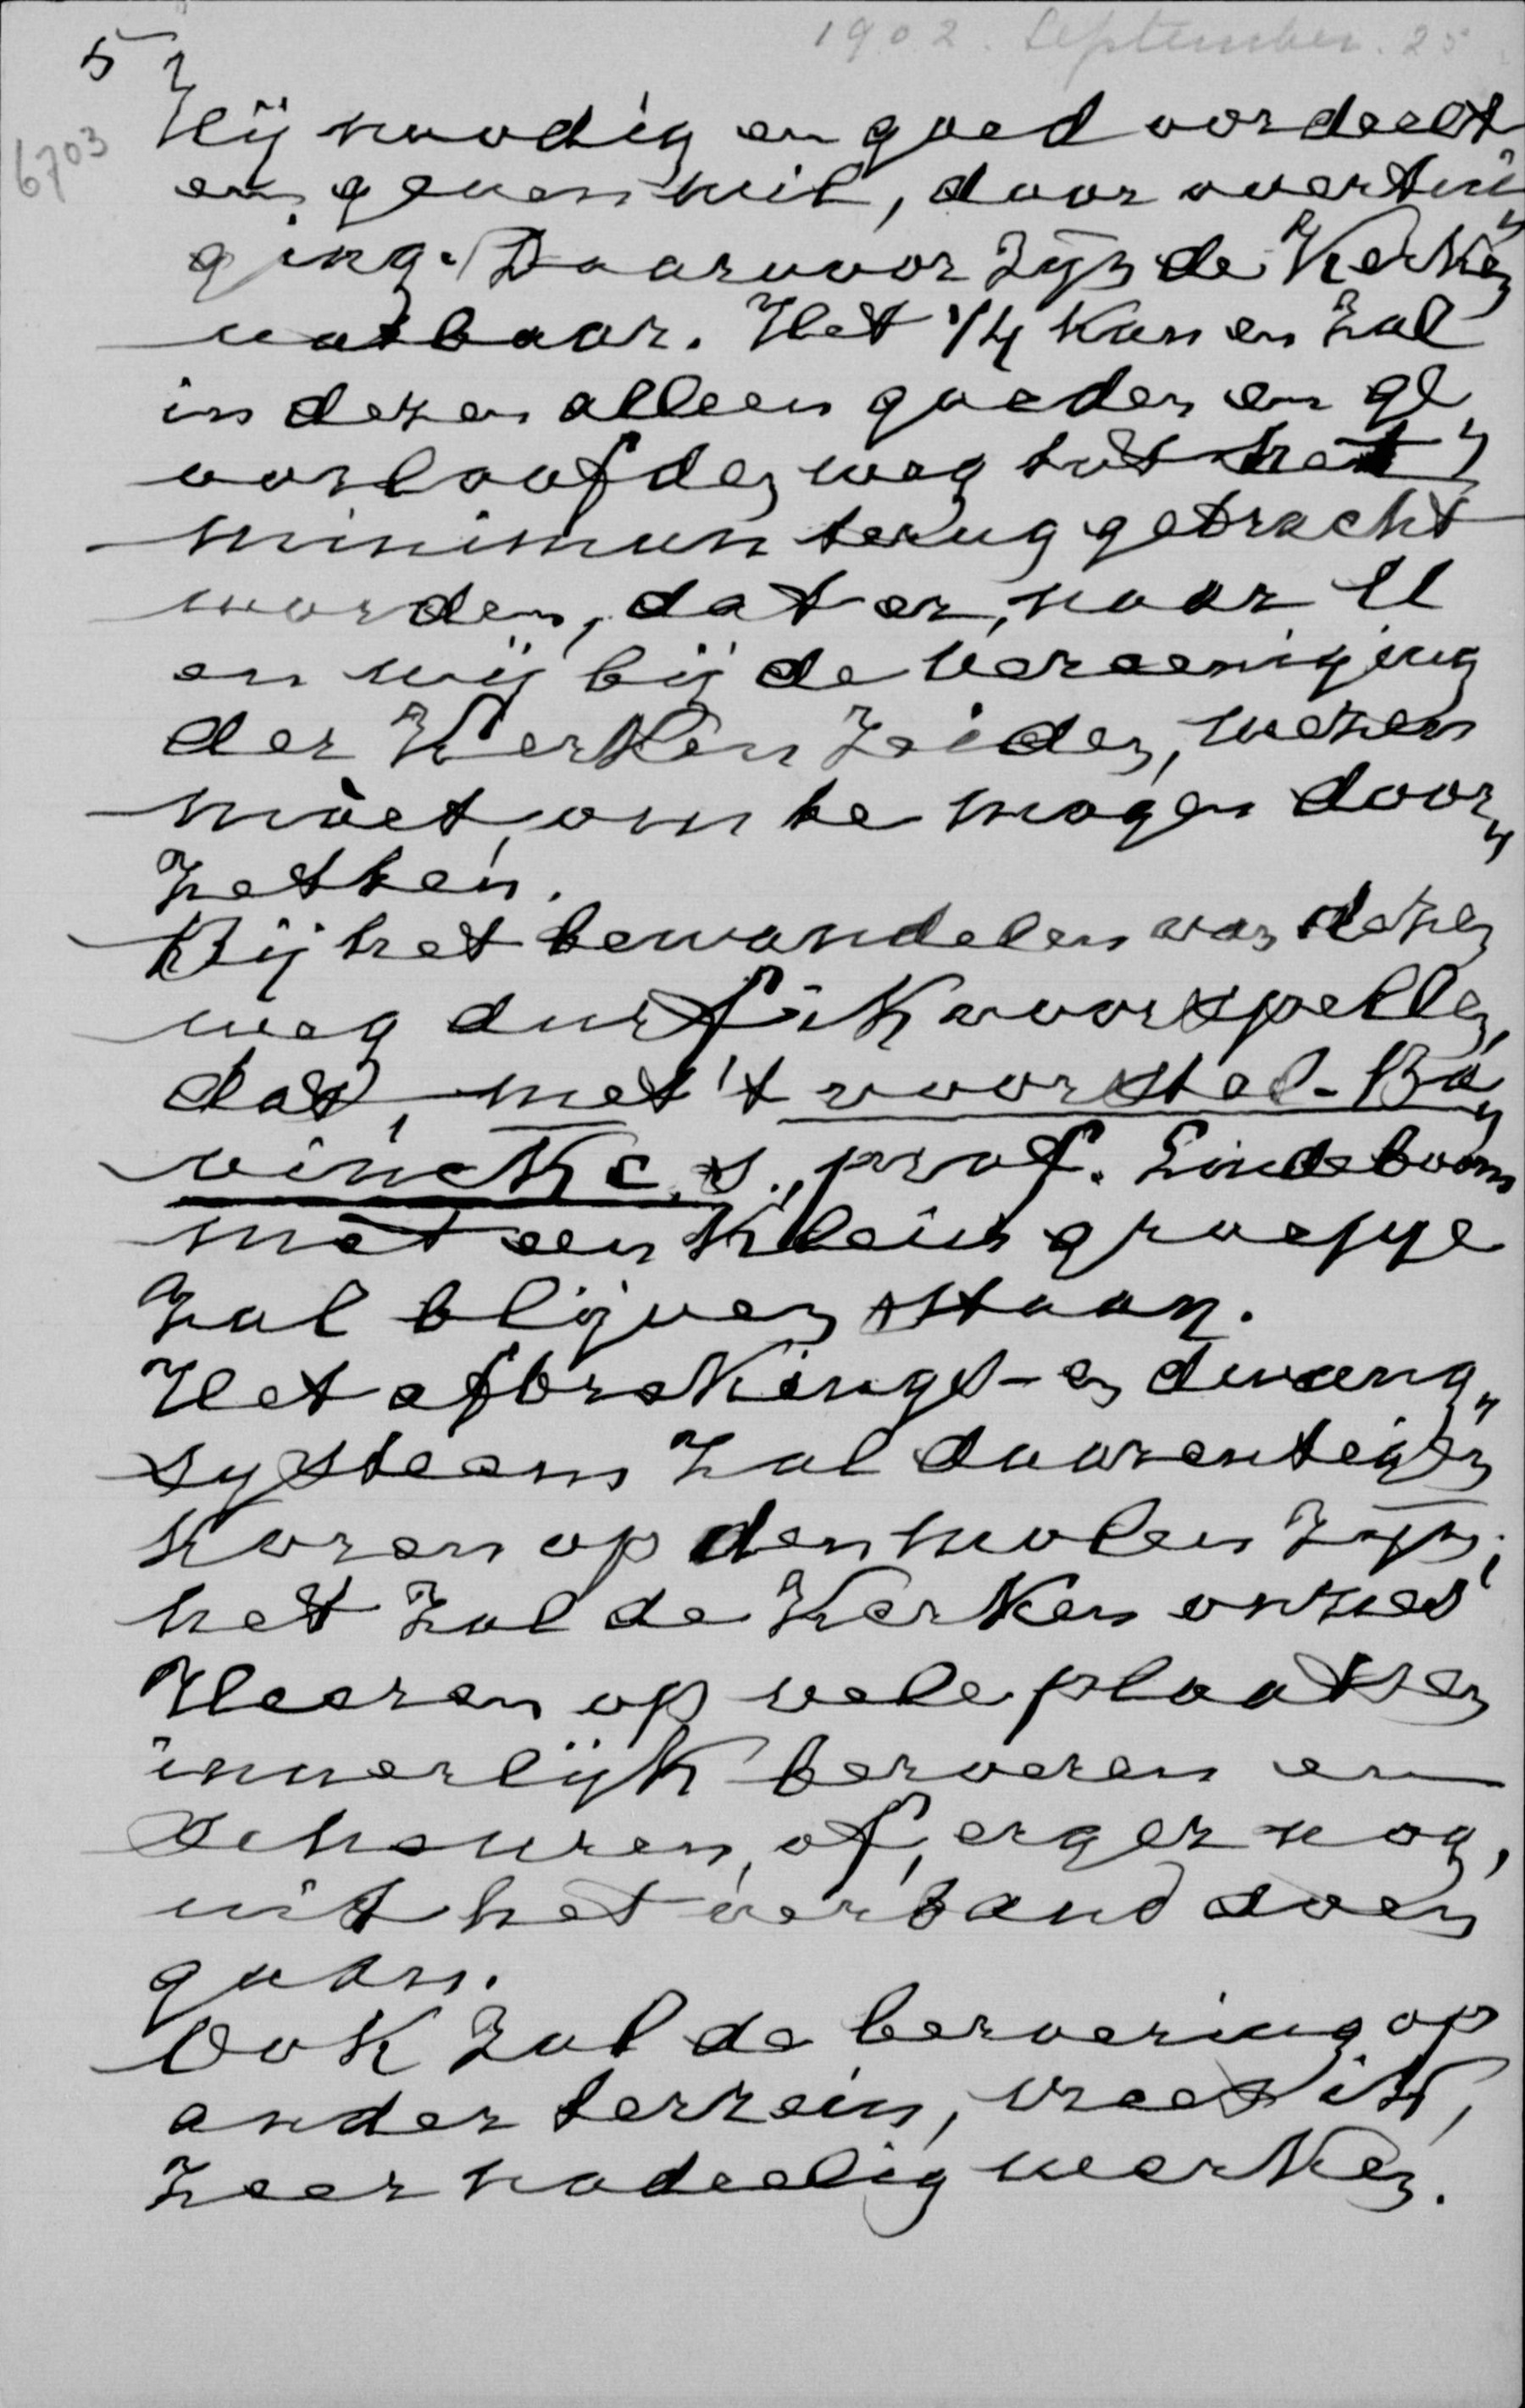 1902. September. 25
5
6703
Hij noodig en goed oordeelt
en geven wil, door overtui„
ging. Daarvoor zijn de Kerken
vatbaar. Het 1/4 kan en zal
in dezen alleen goeden en ge„
oorloofden weg tot het
minimum terug gebracht
worden, dat er, naar U
en wij bij de Vereeniging
der Kerken zeiden, wezen
móet, om te mogen door„
zetten.
Bij het bewandelen van dezen
weg durf ik voorspellen,
dat, met 't voorstel-Ba„
vinck c.s., prof. Lindeboom
met een klein groepje
zal blijven staan.
Het afbrekings- en dwang„
systeem zal daarentegen
koren op den molen zijn;
het zal de Kerken onzes
Heeren op vele plaatsen
innerlijk beroeren en
scheuren, of, erger nog,
uit het verband doen
gaan.
Ook zal de beroering op
ander terrein, vrees ik,
zeer nadeelig werken.